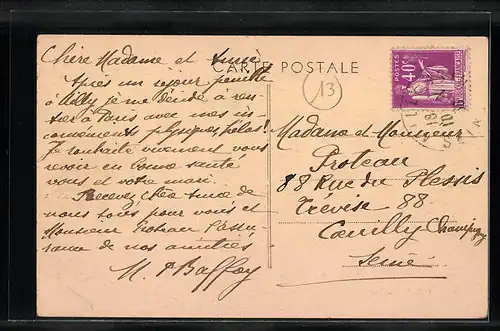 CARTE POSTALE
Chère Madame et Amie
Après un séjour pénible
à Ailly je me décide à ren-
trer à Paris avec mes in-
convénients physiques hélas!
Je souhaite vivement vous
revoir en bonne santé
vous et votre mari.
Recevez, chère amie de
nous tous pour vous et
Monsieur Proteau l'assu-
rance de nos amitiés
M. Baffoy
13
POSTES
40c
Madame et Monsieur
Proteau
88 Rue du Plessis
Trévise 88
Cœuilly-Champigny
Seine